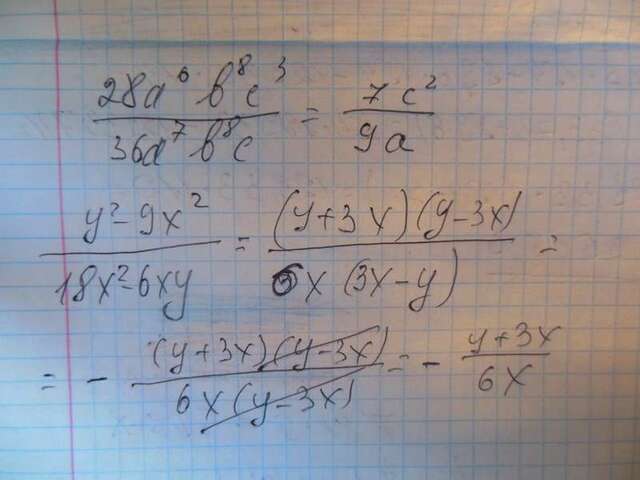 28a⁶ b⁸c³ / 36a⁷ b⁸c = 7c² / 9a
y² - 9x² / 18x² - 6xy = (y+3x)(y-3x) / 6x (3x-y) =
= - (y+3x)(y-3x) / 6x(y-3x) = - y+3x / 6x